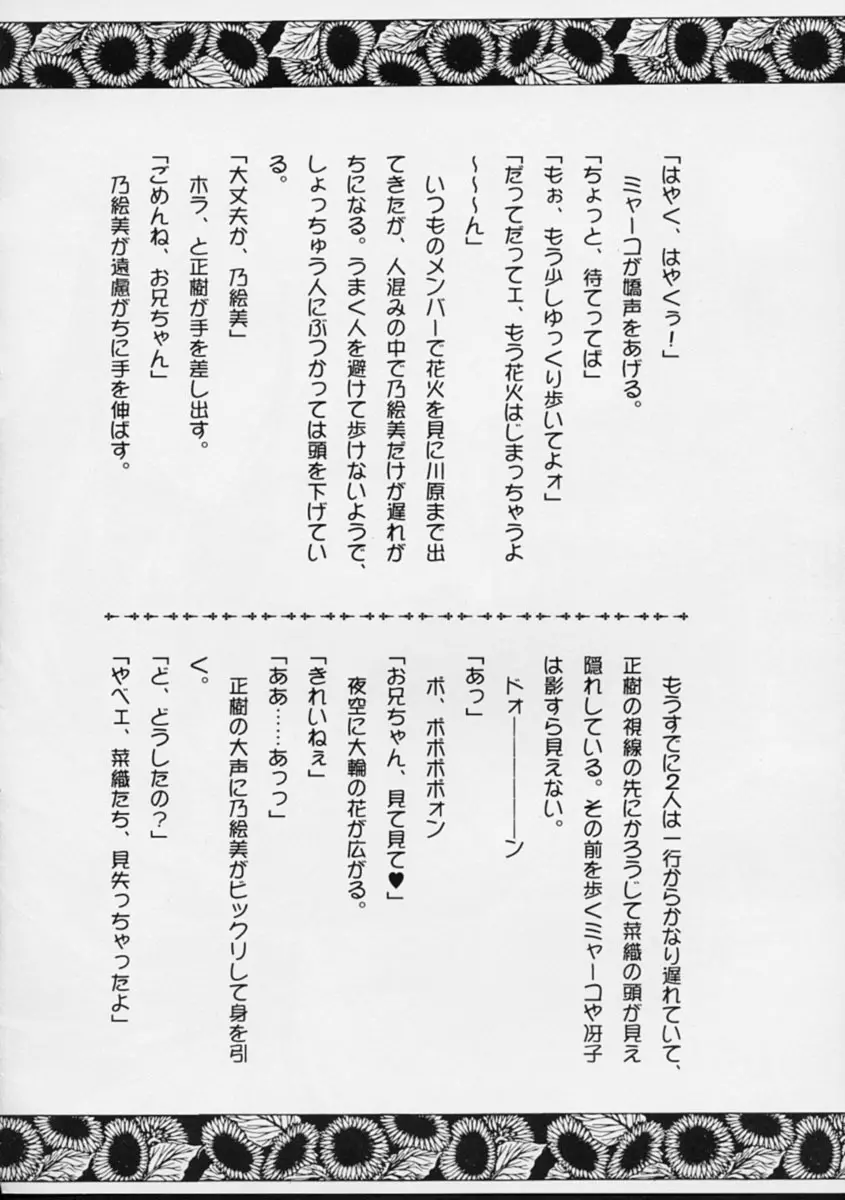 「はやく、はやくぅ！」
　ミャーコが嬌声をあげる。
「ちょっと、待てってば」
「もぉ、もう少しゆっくり歩いてよォ」
「だってだってェ、もう花火はじまっちゃうよ
～～～ん」
　いつものメンバーで花火を見に川原まで出
てきたが、人混みの中で乃絵美だけが遅れが
ちになる。うまく人を避けて歩けないようで、
しょっちゅう人にぶつかっては頭を下げてい
る。
「大丈夫か、乃絵美」
　ホラ、と正樹が手を差し出す。
「ごめんね、お兄ちゃん」
　乃絵美が遠慮がちに手を伸ばす。
　もうすでに2人は一行からかなり遅れていて、
正樹の視線の先にかろうじて菜織の頭が見え
隠れしている。その前を歩くミャーコや冴子
は影すら見えない。
　ドォ―――――ン
「あっ」
　ボ、ボボボボォン
「お兄ちゃん、見て見て♥」
　夜空に大輪の花が広がる。
「きれいねぇ」
「ああ……あっっ」
　正樹の大声に乃絵美がビックリして身を引
く。
「ど、どうしたの？」
「やべェ、菜織たち、見失っちゃったよ」